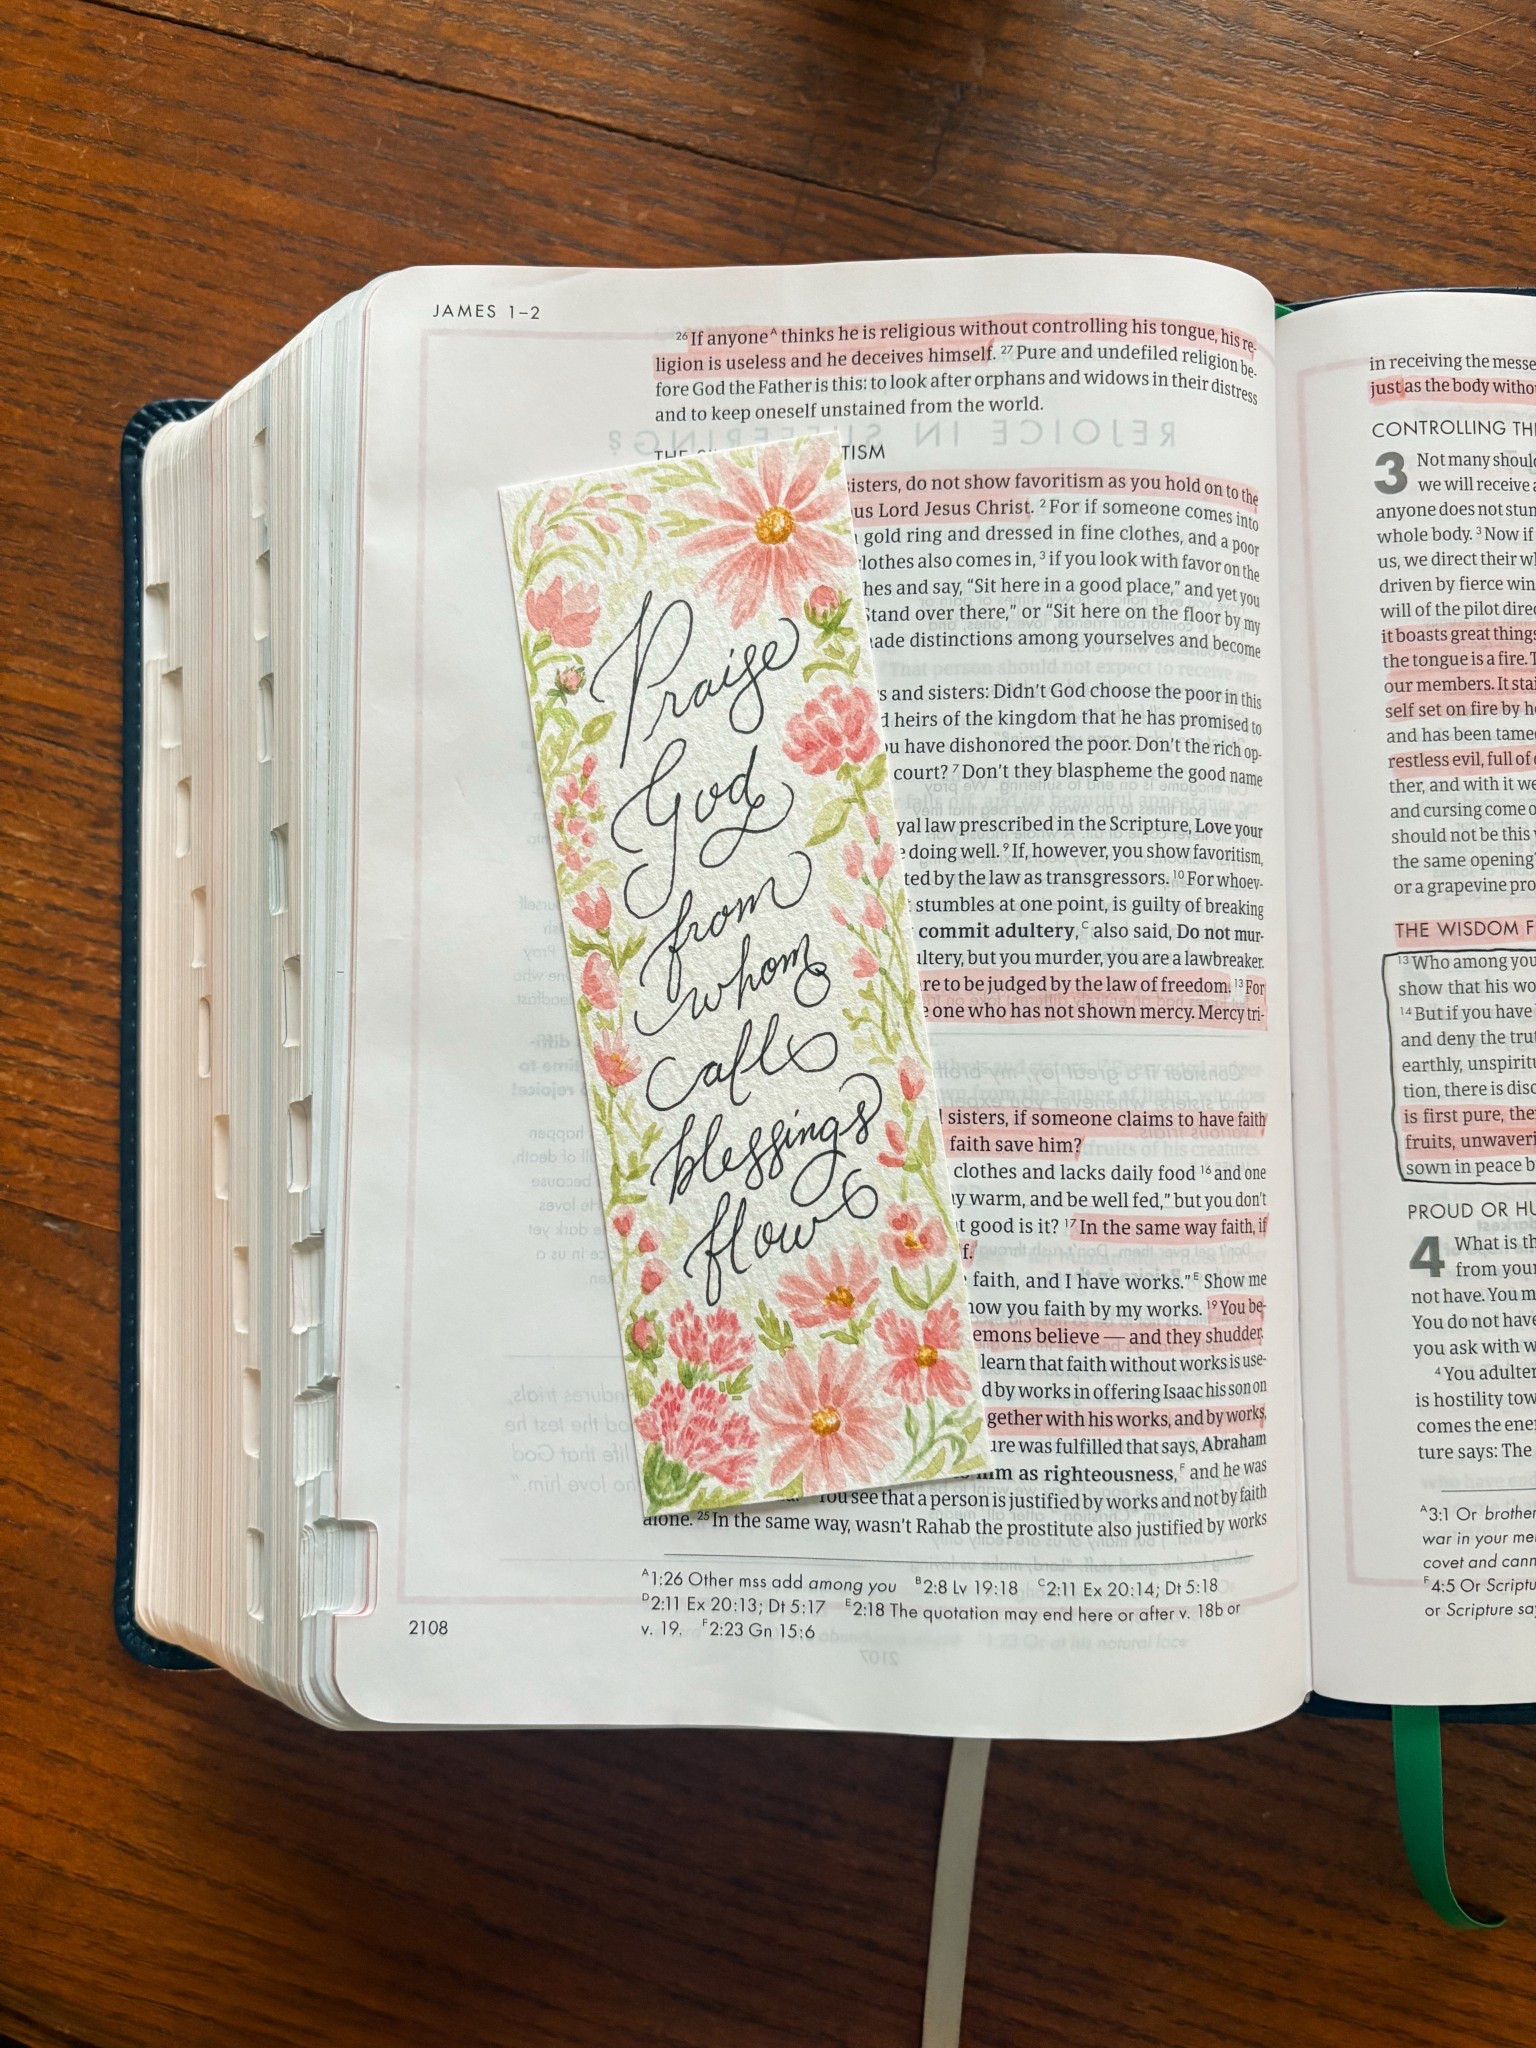 JAMES 1–2
26 If anyone A thinks he is religious without controlling his tongue, his re-
ligion is useless and he deceives himself. 27 Pure and undefiled religion be-
fore God the Father is this: to look after orphans and widows in their distress
and to keep oneself unstained from the world.
sisters, do not show favoritism as you hold on to the
Lord Jesus Christ. 2 For if someone comes into
gold ring and dressed in fine clothes, and a poor
clothes also comes in, 3 if you look with favor on the
and say, “Sit here in a good place,” and yet you
Stand over there,” or “Sit here on the floor by my
made distinctions among yourselves and become
and sisters: Didn’t God choose the poor in this
heirs of the kingdom that he has promised to
you have dishonored the poor. Don’t the rich op-
court? 7 Don’t they blaspheme the good name
law prescribed in the Scripture, Love your
doing well. 9 If, however, you show favoritism,
by the law as transgressors. 10 For whoev-
stumbles at one point, is guilty of breaking
commit adultery, C also said, Do not mur-
but you murder, you are a lawbreaker.
to be judged by the law of freedom. 13 For
one who has not shown mercy. Mercy tri-
sisters, if someone claims to have faith
faith save him?
clothes and lacks daily food 16 and one
warm, and be well fed,” but you don’t
good is it? 17 In the same way faith, if
faith, and I have works.” E Show me
you faith by my works. 19 You be-
demons believe — and they shudder.
learn that faith without works is use-
by works in offering Isaac his son on
together with his works, and by works,
was fulfilled that says, Abraham
him as righteousness, F and he was
You see that a person is justified by works and not by faith
alone. 25 In the same way, wasn’t Rahab the prostitute also justified by works
A 1:26 Other mss add among you B 2:8 Lv 19:18 C 2:11 Ex 20:14; Dt 5:18
D 2:11 Ex 20:13; Dt 5:17 E 2:18 The quotation may end here or after v. 18b or
v. 19. F 2:23 Gn 15:6
2108
Praise
God
from
whom
all
blessings
flow
in receiving the
just as the body
CONTROLLING
3 Not many
we will receive
anyone does not
whole body. 3 Now if
us, we direct their
driven by fierce
will of the pilot
it boasts great things
the tongue is a fire.
our members. It
self set on fire by
and has been
restless evil, full of
ther, and with it we
and cursing come
should not be this
the same opening
or a grapevine
THE WISDOM
13 Who among you
show that his
14 But if you have
and deny the
earthly,
tion, there is
is first pure,
fruits,
sown in peace
PROUD OR
4 What is
from your
not have. You
You do not have
you ask with
4 You
is hostility
comes the
ture says: The
A 3:1 Or
war in your
covet and
F 4:5 Or
or Scripture